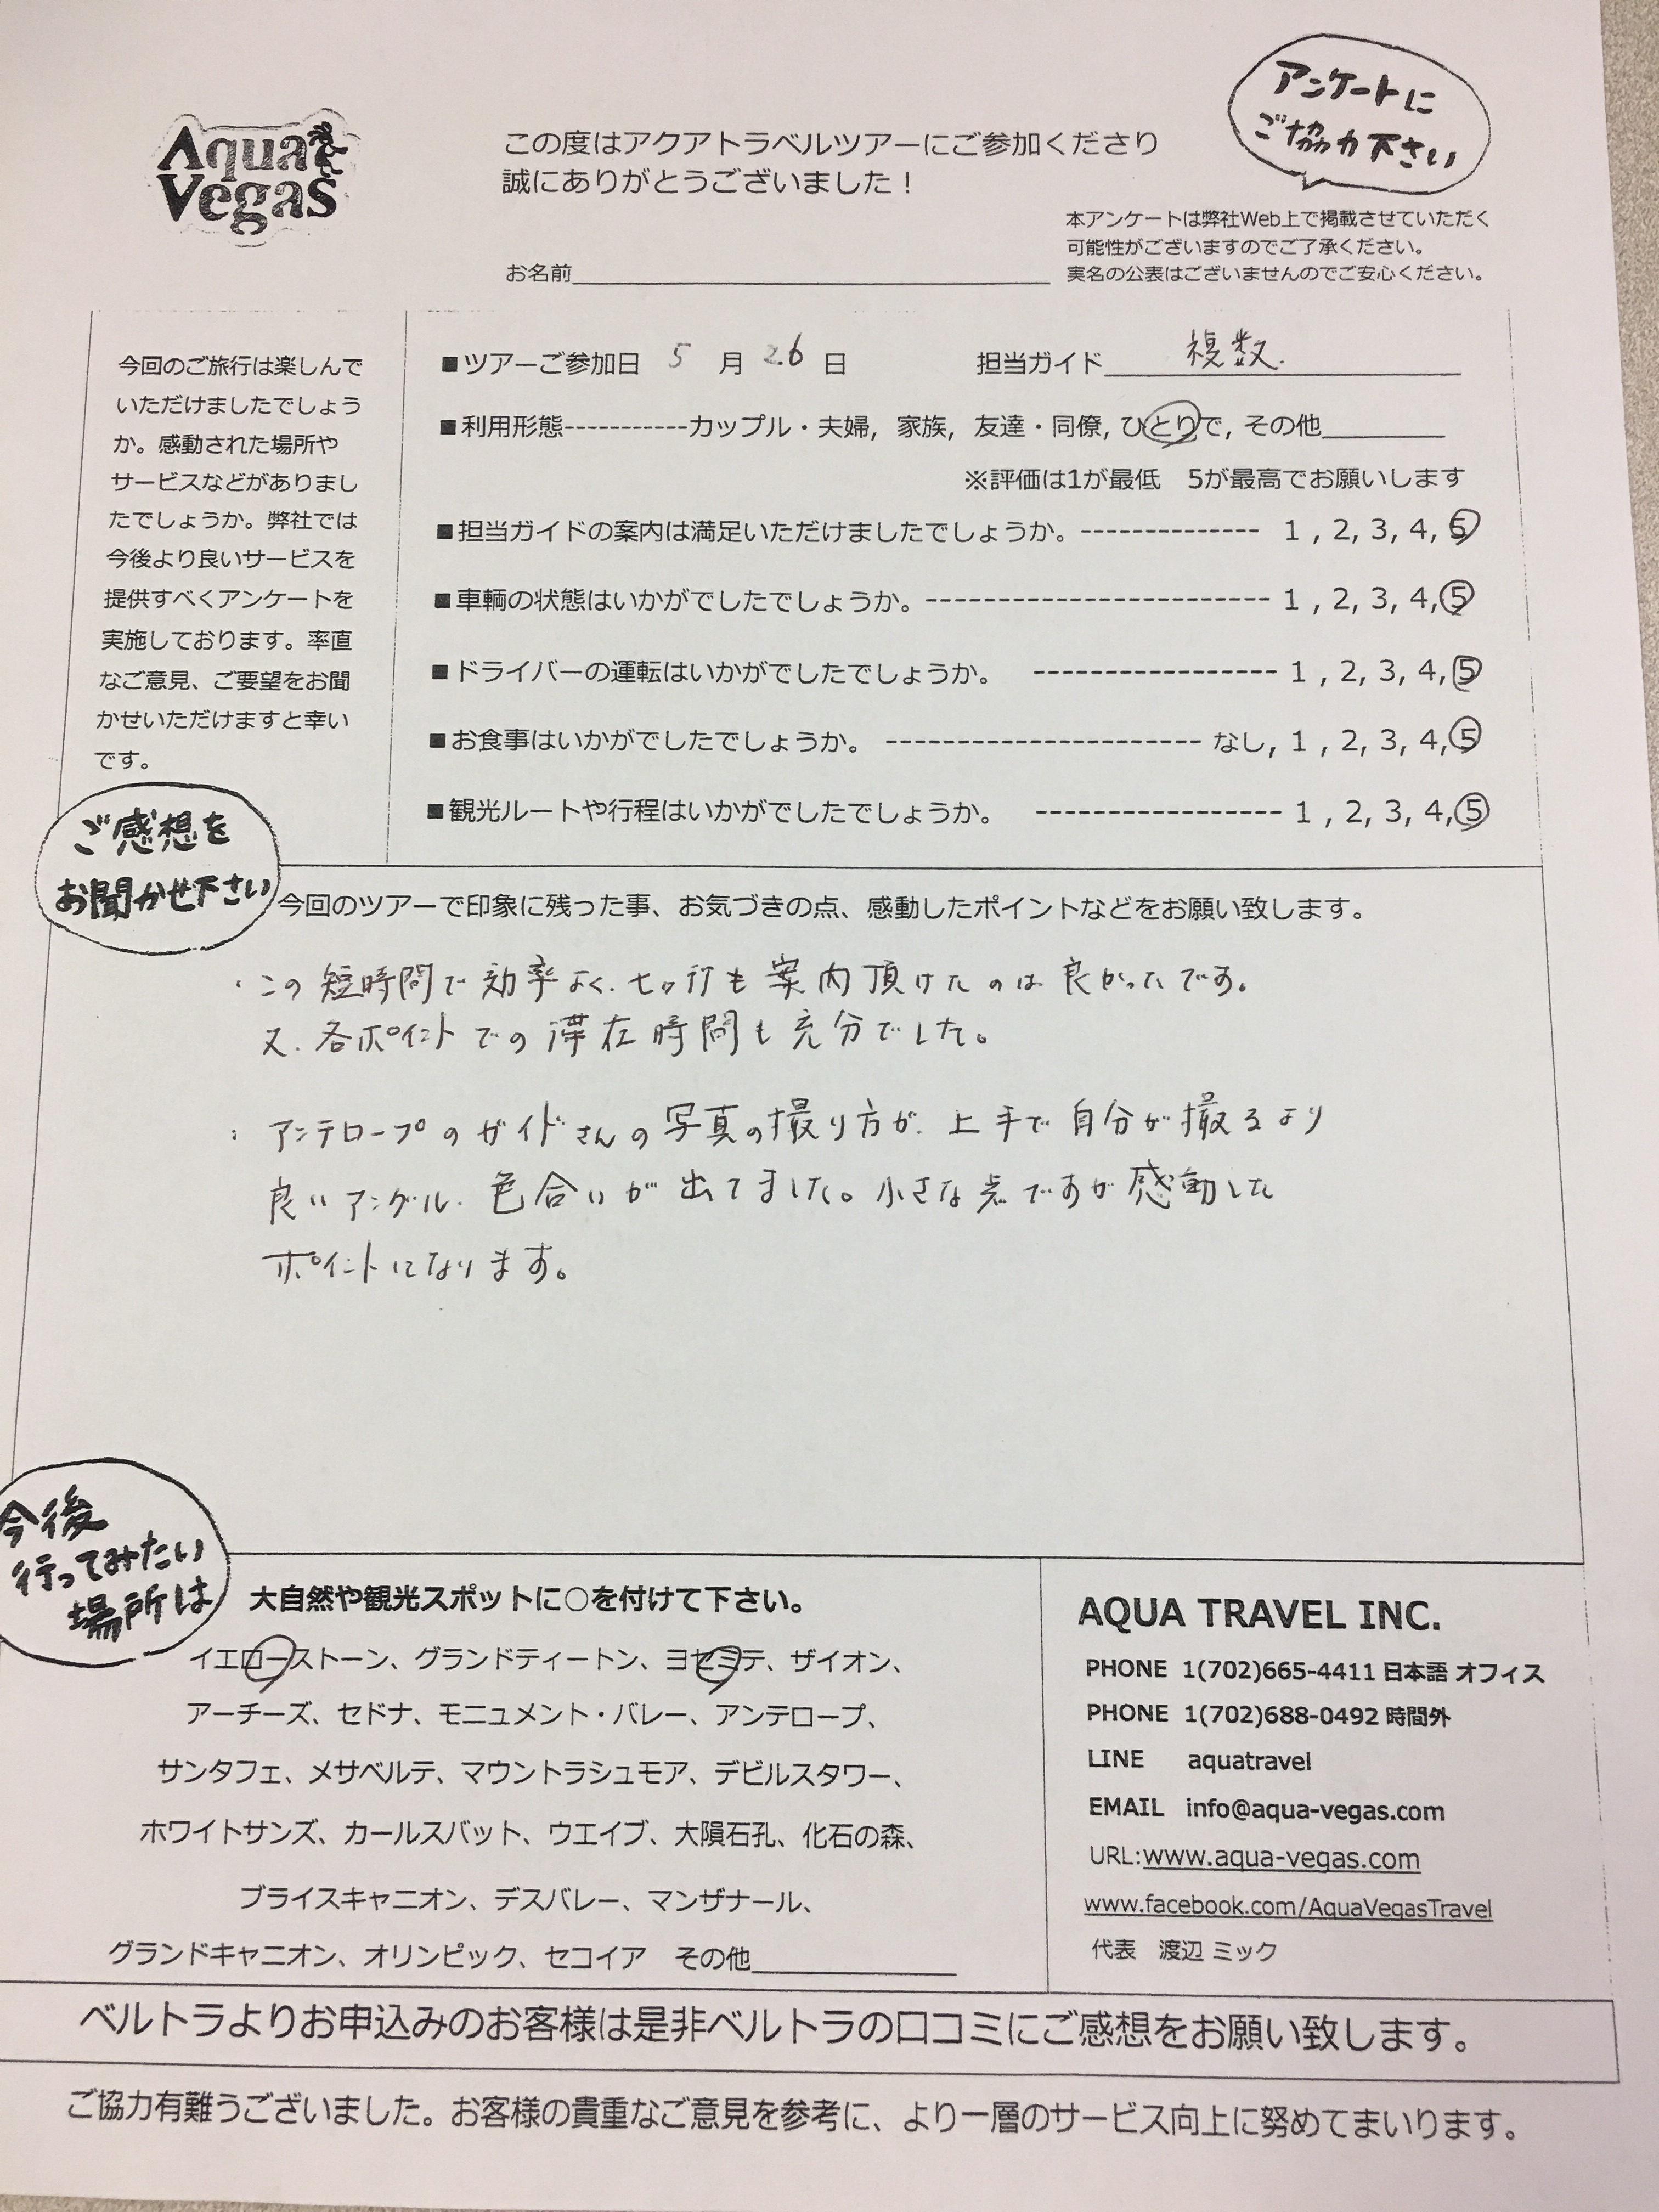 Aqua
Vegas
この度はアクアトラベルツアーにご参加くださり
誠にありがとうございました！
アンケートに
ご協力下さい
本アンケートは弊社Web上で掲載させていただく
可能性がございますのでご了承ください。
お名前
実名の公表はございませんのでご安心ください。
今回のご旅行は楽しんで
いただけましたでしょう
か。感動された場所や
サービスなどがありまし
たでしょうか。弊社では
今後より良いサービスを
提供すべくアンケートを
実施しております。率直
なご意見、ご要望をお聞
かせいただけますと幸い
です。
■ツアーご参加日 5 月 26 日 担当ガイド 複数.
■利用形態-----------カップル・夫婦, 家族, 友達・同僚, ひとりで, その他
※評価は1が最低 5が最高でお願いします
■担当ガイドの案内は満足いただけましたでしょうか。-------------- 1 , 2, 3, 4, 5
■車輌の状態はいかがでしたでしょうか。---------------------------- 1 , 2, 3, 4, 5
■ドライバーの運転はいかがでしたでしょうか。 ----------------- 1 , 2, 3, 4, 5
■お食事はいかがでしたでしょうか。 ---------------------- なし, 1 , 2, 3, 4, 5
■観光ルートや行程はいかがでしたでしょうか。 ----------------- 1 , 2, 3, 4, 5
ご感想を
お聞かせ下さい
今回のツアーで印象に残った事、お気づきの点、感動したポイントなどをお願い致します。
・この短時間で効率よく、七ヶ所も案内頂けたのは良かったです。
又、各ポイントでの滞在時間も充分でした。
：アンテロープのガイドさんの写真の撮り方が、上手で自分が撮るより
良いアングル、色合いが出てました。小さな点ですが感動した
ポイントになります。
今後
行ってみたい
場所は
大自然や観光スポットに○を付けて下さい。
イエローストーン、グランドティートン、ヨセミテ、ザイオン、
アーチーズ、セドナ、モニュメント・バレー、アンテロープ、
サンタフェ、メサベルテ、マウントラシュモア、デビルスタワー、
ホワイトサンズ、カールスバット、ウエイブ、大隕石孔、化石の森、
ブライスキャニオン、デスバレー、マンザナール、
グランドキャニオン、オリンピック、セコイア その他
AQUA TRAVEL INC.
PHONE 1(702)665-4411 日本語 オフィス
PHONE 1(702)688-0492 時間外
LINE aquatravel
EMAIL info@aqua-vegas.com
URL:www.aqua-vegas.com
www.facebook.com/AquaVegasTravel
代表 渡辺 ミック
ベルトラよりお申込みのお客様は是非ベルトラの口コミにご感想をお願い致します。
ご協力有難うございました。お客様の貴重なご意見を参考に、より一層のサービス向上に努めてまいります。